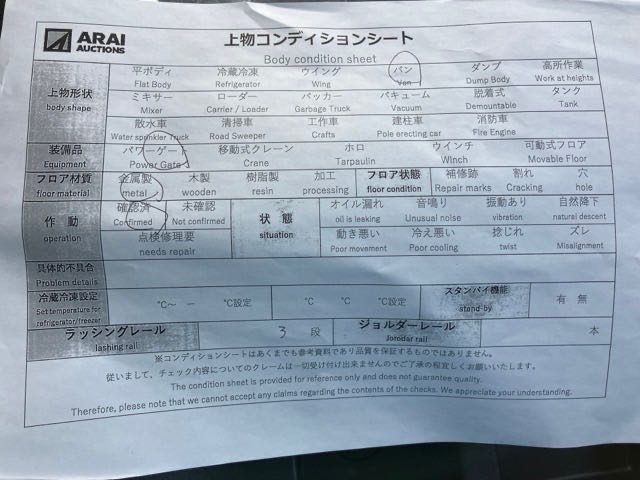 ARAI
AUCTIONS
上物コンディションシート
Body condition sheet
上物形状
body shape
平ボディ 冷蔵冷凍 ウイング バン ダンプ 高所作業
Flat Body Refrigerator Wing Van Dump Body Work at heights
ミキサー ローダー パッカー バキューム 脱着式 タンク
Mixer Carrier / Loader Garbage Truck Vacuum Demountable Tank
散水車 清掃車 工作車 建柱車 消防車
Water sprinkler Truck Road Sweeper Crafts Pole erecting car Fire Engine
装備品 パワーゲート 移動式クレーン ホロ ウインチ 可動式フロア
Equipment Power Gate Crane Tarpaulin Winch Movable Floor
フロア材質 金属製 木製 樹脂製 加工 フロア状態 補修跡 割れ 穴
floor material metal wooden resin processing floor condition Repair marks Cracking hole
作 動
operation
確認済 未確認
Confirmed Not confirmed
点検修理要
needs repair
状 態
situation
オイル漏れ 音鳴り 振動あり 自然降下
oil is leaking Unusual noise vibration natural descent
動き悪い 冷え悪い 捻じれ ズレ
Poor movement Poor cooling twist Misalignment
具体的不具合
Problem details
冷蔵冷凍設定 ℃～ － ℃設定 ℃ ℃ ℃設定 スタンバイ機能 有 無
Set temperature for
refrigerator/freezer
stand-by
ラッシングレール 3 段 ジョルダーレール 本
lashing rail Jorodar rail
※コンディションシートはあくまでも参考資料であり品質を保証するものではありません。
従いまして、チェック内容についてのクレームは一切受け付け出来ませんのでご了承の程宜しくお願いいたします。
The condition sheet is provided for reference only and does not guarantee quality.
Therefore, please note that we cannot accept any claims regarding the contents of the checks. We appreciate your understanding.